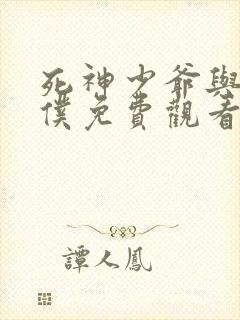 死神少爺與
僕免費觀看
譚人鳳